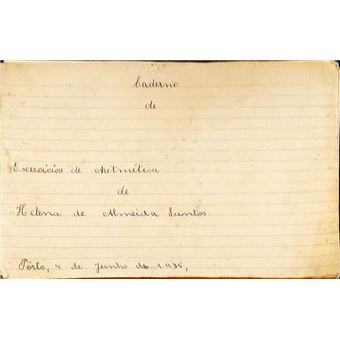 Caderno
de
Exercicios de Aritmética
de
Helena de Almeida Santos.
Pôrto, 4 de Junho de 1935,